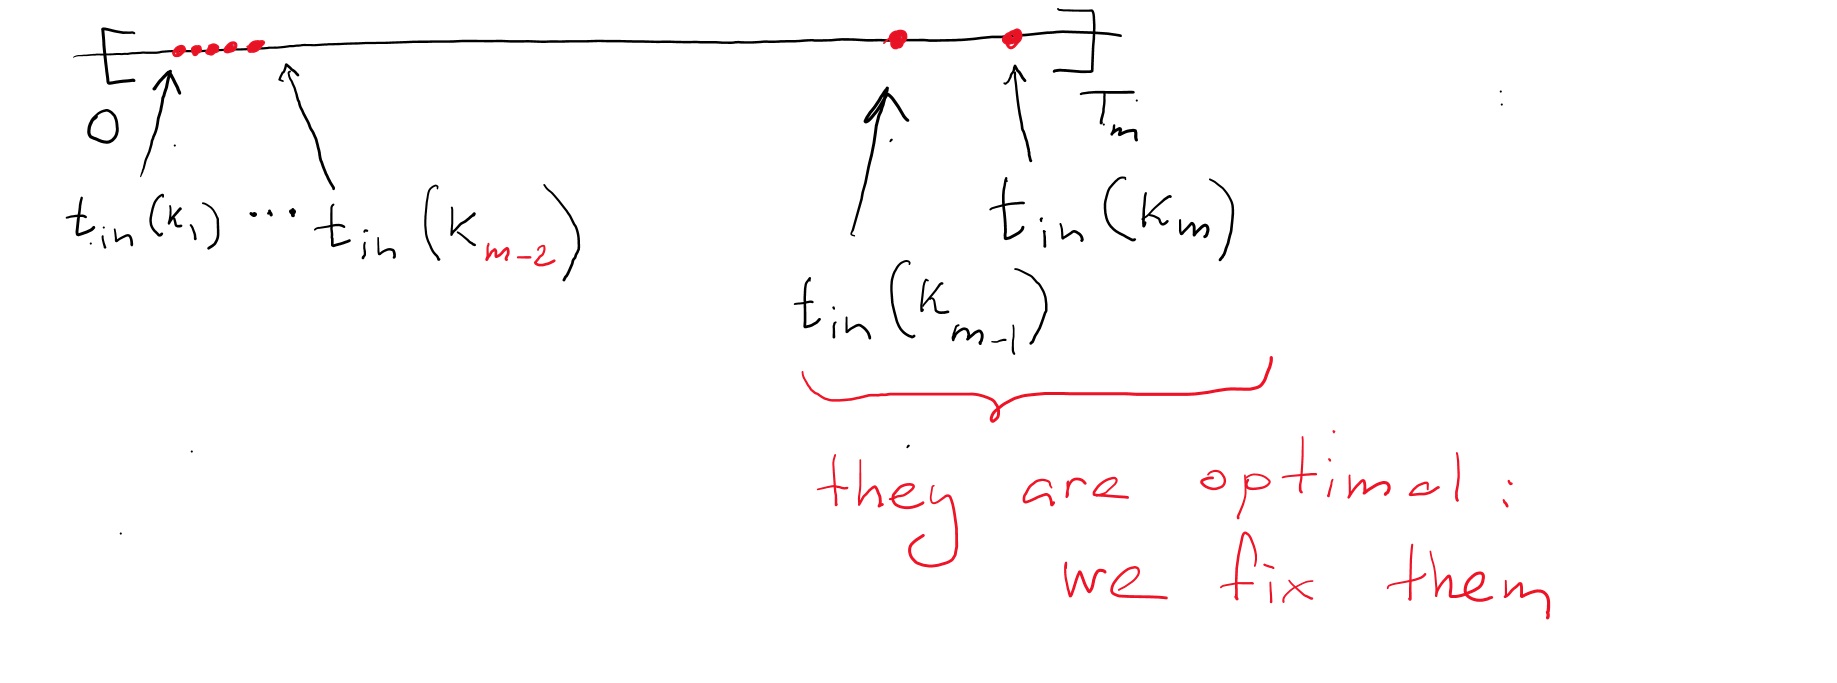 [ ]
0 T_m
t_in(k_1) ... t_in(k_m-2) t_in(k_m)
t_in(k_m-1)
they are optimal:
we fix them